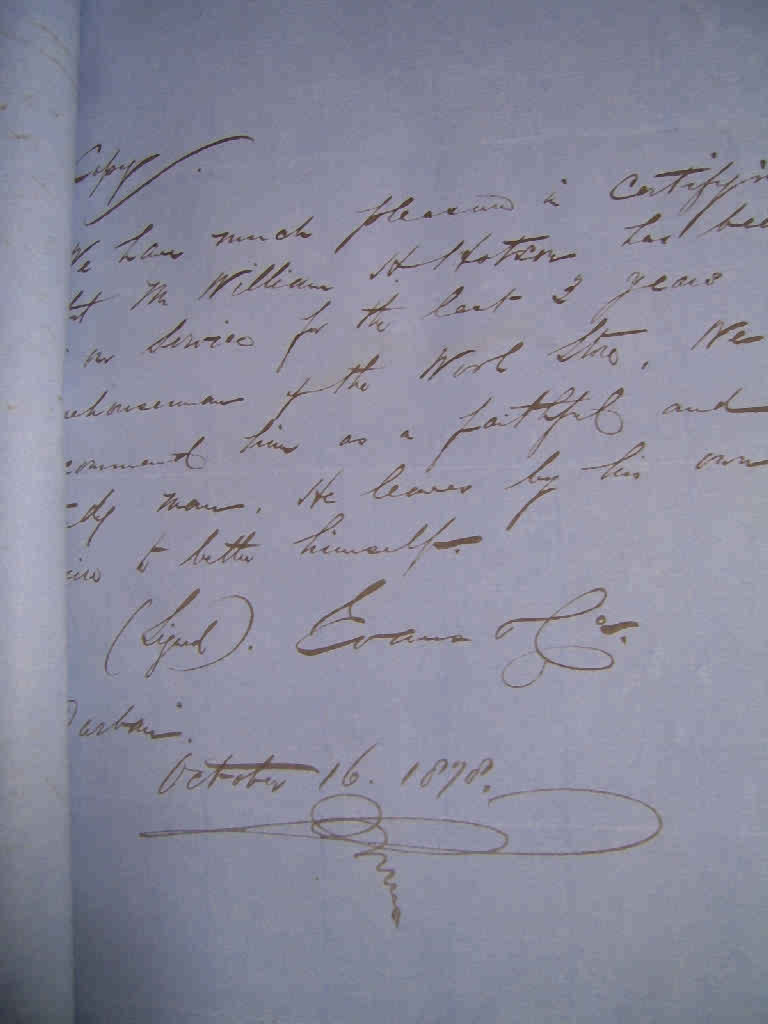 Copy.
We have much pleasure in certifyin
at Mr William H Hotson has bee
our Service for the last 3 years
ehouseman of the Wool Store. We
commend him as a faithful and
dy man. He leaves by his own
sire to better himself.
(Signed). Evans & Co.
October 16. 1878.